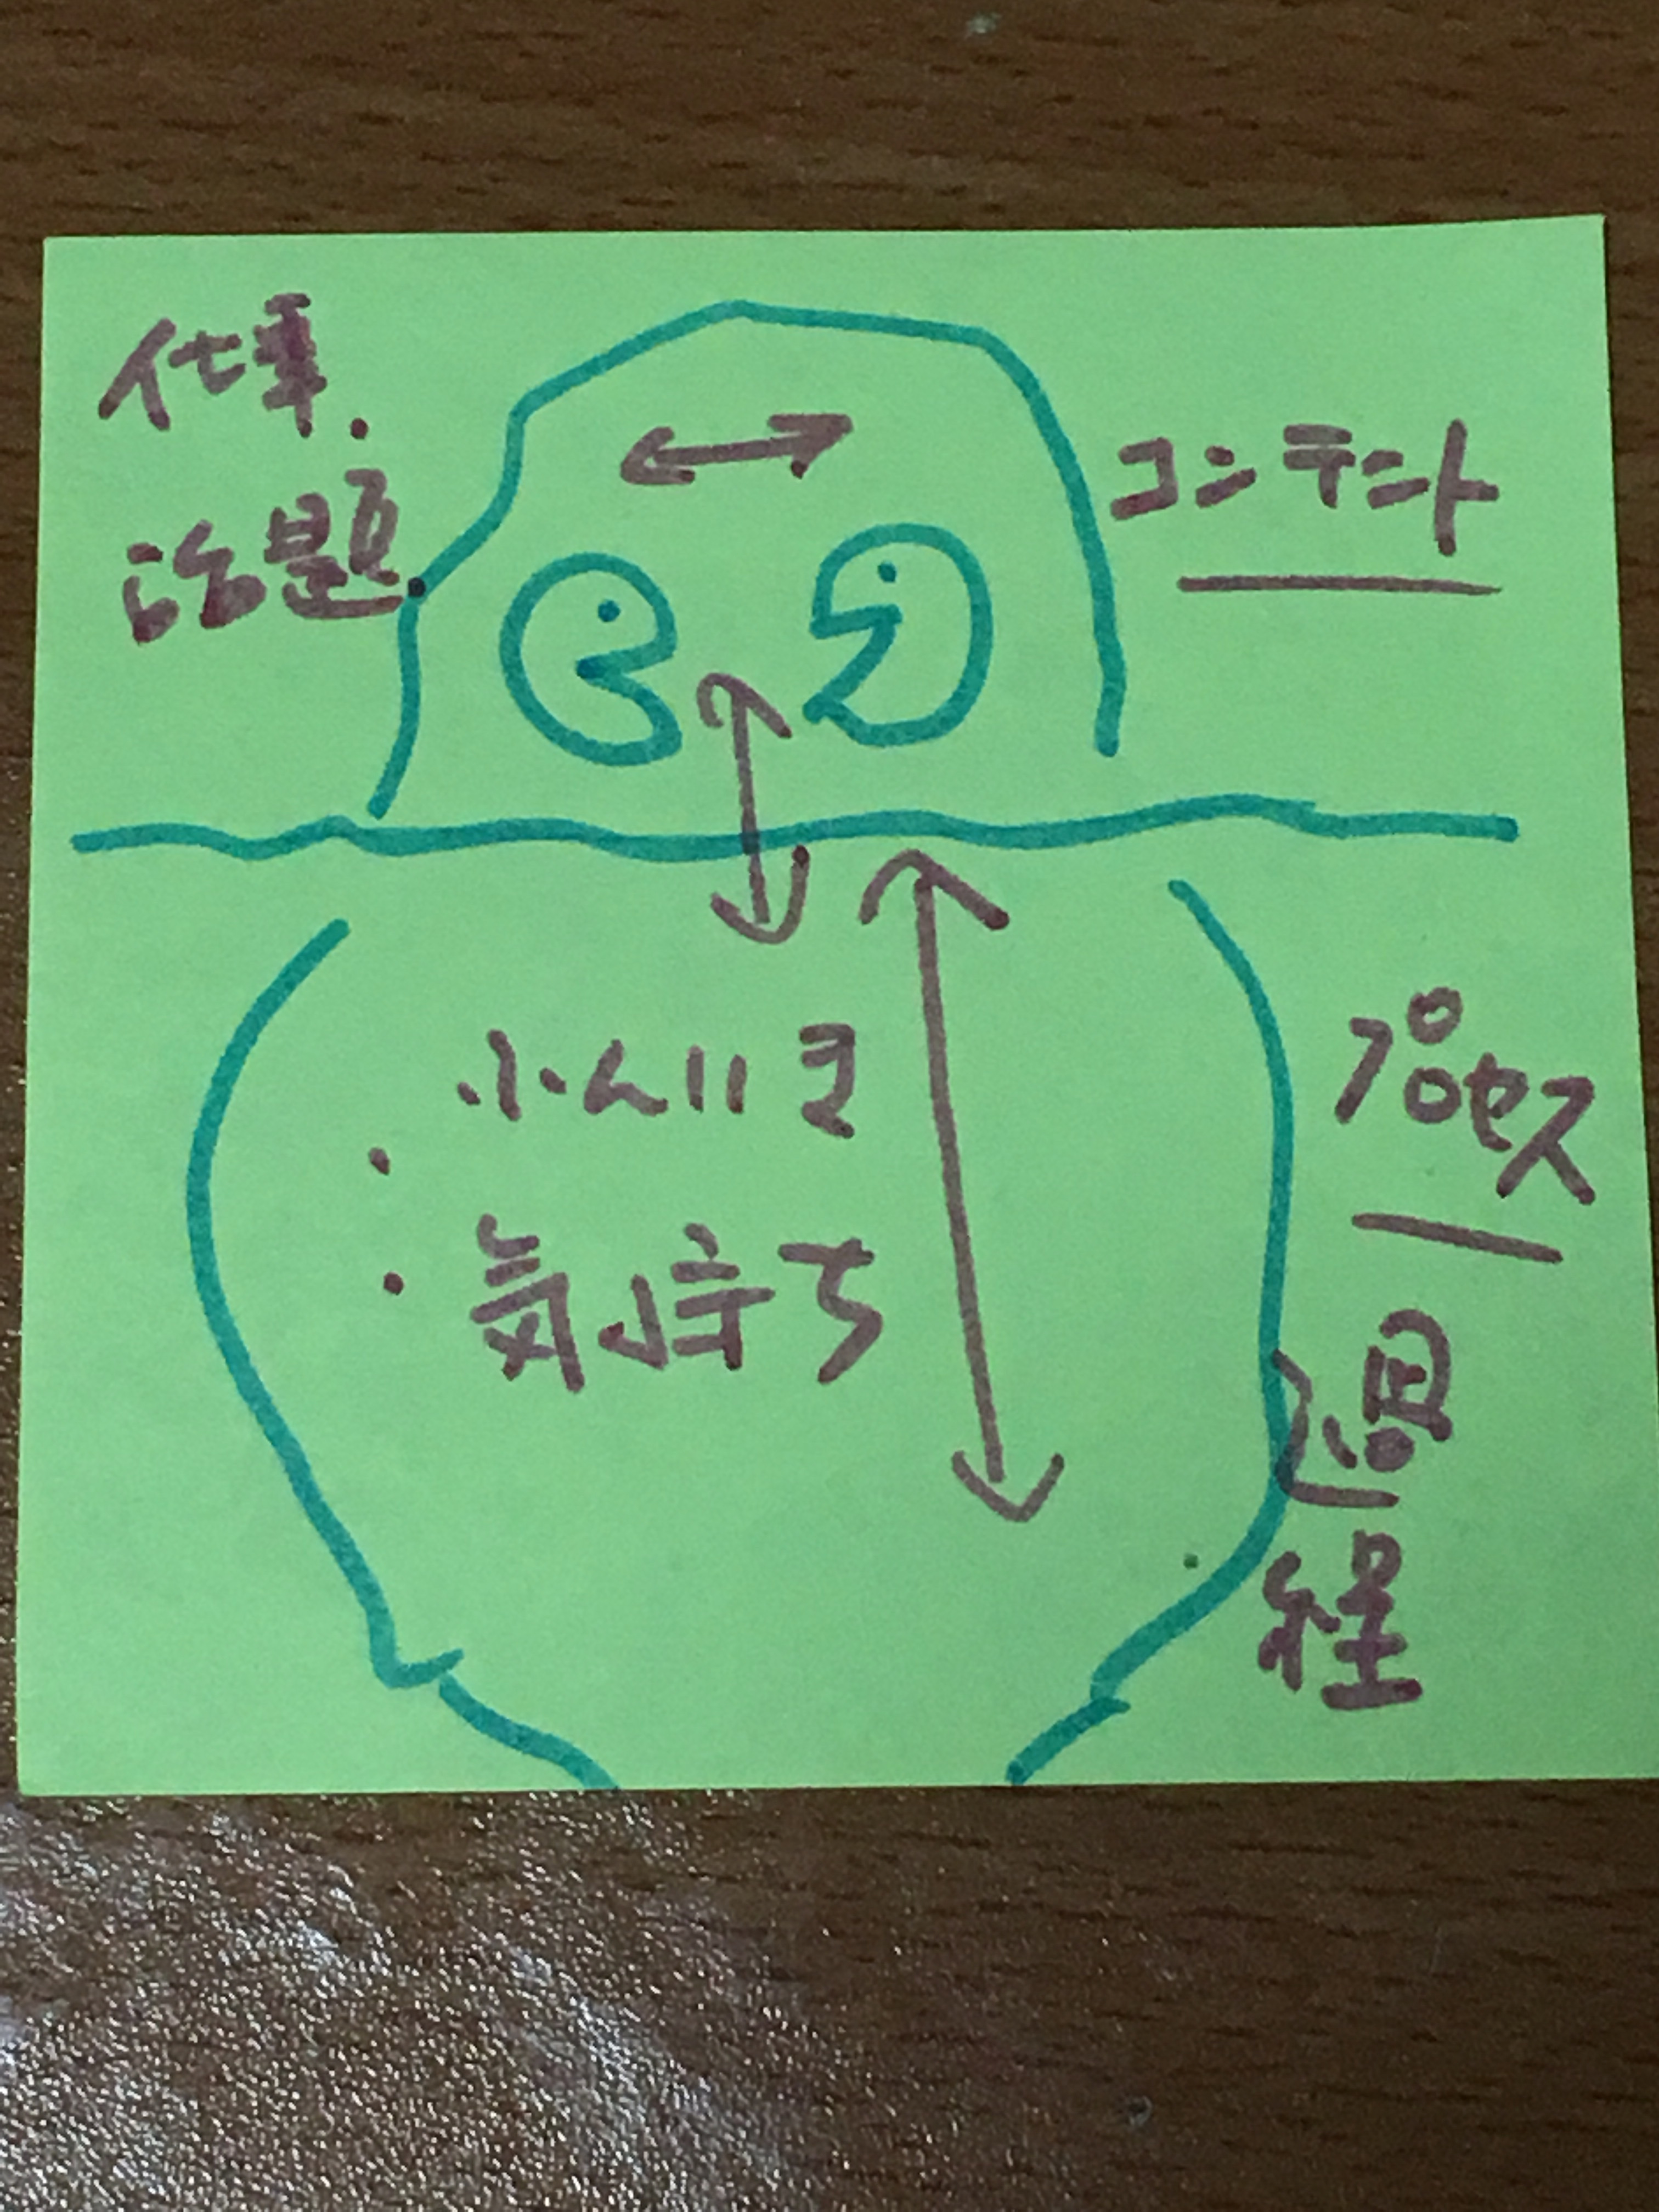 仕事.
話題
コンテント
・ふんいき
・気持ち
プロセス
過
程